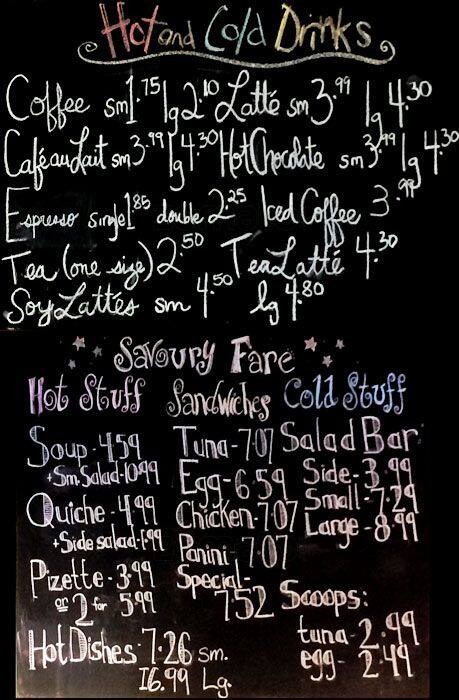 Hot and Cold Drinks
Coffee sm 1.75 lg 2.10 Latté sm 3.99 lg 4.30
Café au Lait sm 3.99 lg 4.30 Hot Chocolate sm 3.99 lg 4.30
Espresso single 1.85 double 2.25 Iced Coffee 3.99
Tea (one size) 2.50 Tea Latté 4.30
Soy Lattés sm 4.50 lg 4.80
Savoury Fare
Hot Stuff
Soup - 4.59
+ Sm. Salad - 10.99
Quiche - 4.99
+ Side salad - 1.99
Pizette - 3.99
or 2 for 5.99
Hot Dishes: 7.26 sm.
16.99 Lg.
Sandwiches
Tuna - 7.07
Egg - 6.59
Chicken - 7.07
Panini - 7.07
Special -
7.52
Cold Stuff
Salad Bar
Side - 3.99
Small - 7.29
Large - 8.99
Scoops:
tuna - 2.99
egg - 2.49